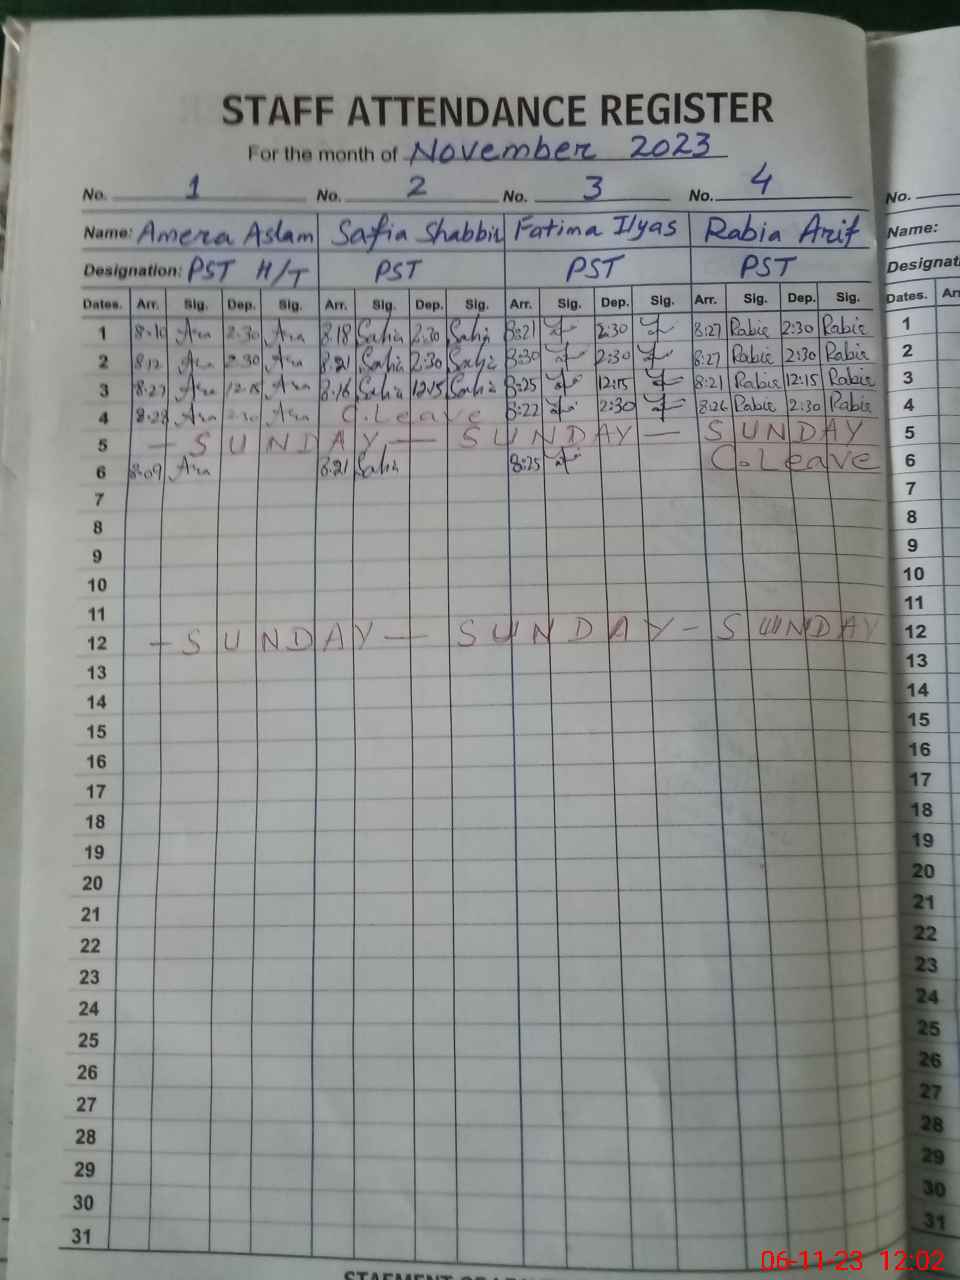 STAFF ATTENDANCE REGISTER
For the month of November 2023
No. 1 No. 2 No. 3 No. 4 No.
Name: Amera Aslam Safia Shabbir Fatima Ilyas Rabia Arif Name:
Designation: PST H/T PST PST PST
Dates. Arr. Sig. Dep. Sig. Arr. Sig. Dep. Sig. Arr. Sig. Dep. Sig. Arr. Sig. Dep. Sig. Dates.
1 8:10 2:30 8:18 2:30 8:21 2:30 8:27 Rabia 2:30 Rabia 1
2 8:12 2:30 8:21 2:30 8:30 2:30 8:27 Rabia 2:30 Rabia 2
3 8:27 12:15 8:16 12:15 8:25 12:15 8:21 Rabia 12:15 Rabia 3
4 8:28 2:30 C.Leave 8:22 2:30 8:26 Rabia 2:30 Rabia 4
5 – SUNDAY — SUNDAY — SUNDAY 5
6 8:09 8:21 8:25 C.Leave 6
7 7
8 8
9 9
10 10
11 11
12 – SUNDAY — SUNDAY – SUNDAY 12
13 13
14 14
15 15
16 16
17 17
18 18
19 19
20 20
21 21
22 22
23 23
24 24
25 25
26 26
27 27
28 28
29 29
30 30
31 31
06-11-23 12:02